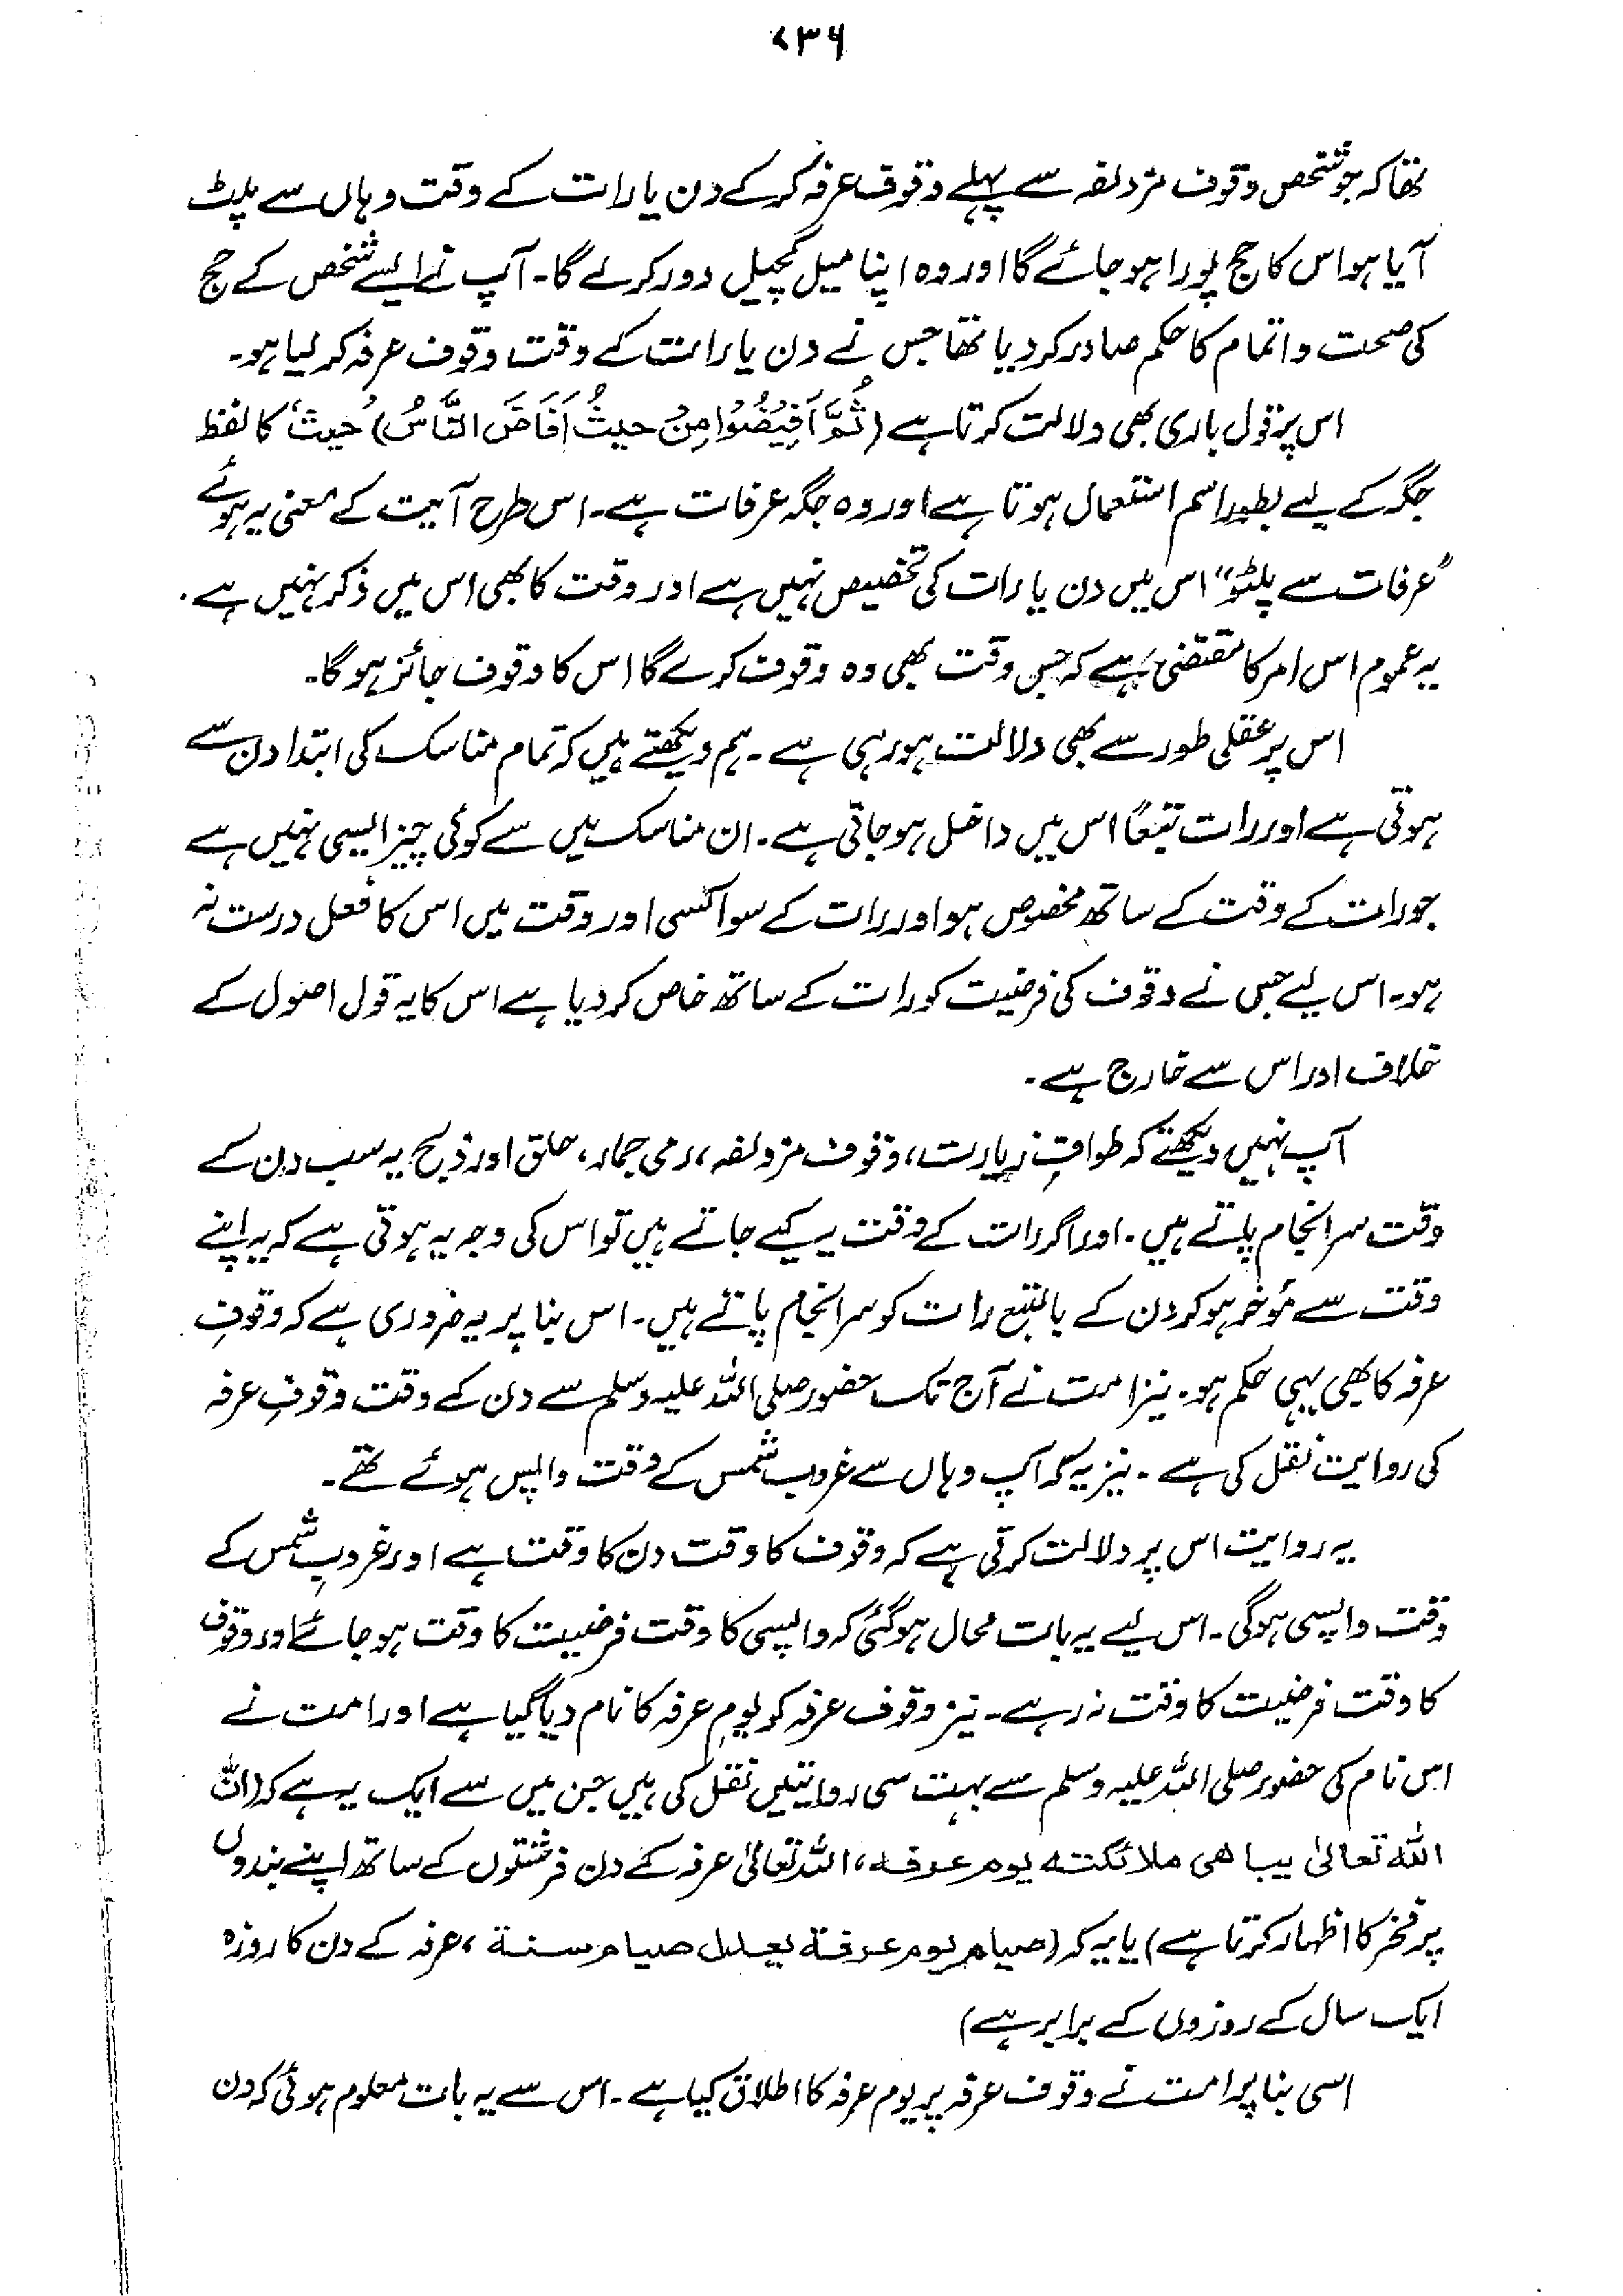 ۷۳۶
تھا کہ جو شخص وقوف مزدلفہ سے پہلے وقوف عرفہ کر کے دن یا رات کے وقت وہاں سے پلٹ
آیا ہو اس کا حج پورا ہو جائے گا اور وہ اپنا میل کچیل دور کرلے گا۔ آپ نے ایسے شخص کے حج
کی صحت و اتمام کا حکم صادر کر دیا تھا جس نے دن یا رات کے وقت وقوف عرفہ کر لیا ہو۔
اس پر قول باری بھی دلالت کرتا ہے (ثُمَّ اَفِیْضُوْا مِنْ حیثُ اَفَاضَ النَّاسُ) حیثُ کا لفظ
جگہ کے لیے بطور اسم استعمال ہوتا ہے اور وہ جگہ عرفات ہے۔ اس طرح آیت کے معنی یہ ہوئے
"عرفات سے پلٹو" اس میں دن یا رات کی تخصیص نہیں ہے اور وقت کا بھی اس میں ذکر نہیں ہے۔
یہ عموم اس امر کا مقتضی ہے کہ جس وقت بھی وہ وقوف کرے گا اس کا وقوف جائز ہوگا۔
اس پر عقلی طور سے بھی دلالت ہو رہی ہے۔ ہم دیکھتے ہیں کہ تمام مناسک کی ابتدا دن سے
ہوتی ہے اور رات تبعًا اس میں داخل ہو جاتی ہے۔ ان مناسک میں سے کوئی چیز ایسی نہیں ہے
جو رات کے وقت کے ساتھ مخصوص ہو اور رات کے سوا کسی اور وقت میں اس کا فعل درست نہ
ہو۔ اس لیے جس نے وقوف کی فرضیت کو رات کے ساتھ خاص کر دیا ہے اس کا یہ قول اصول کے
خلاف اور اس سے خارج ہے۔
آپ نہیں دیکھتے کہ طوافِ زیارت، وقوف مزدلفہ، رمی جمار، حلق اور ذبح یہ سب دن کے
وقت سرانجام پاتے ہیں۔ اور اگر رات کے وقت یہ کیے جاتے ہیں تو اس کی وجہ یہ ہوتی ہے کہ یہ اپنے
وقت سے مؤخر ہو کر دن کے بالتبع رات کو سرانجام پاتے ہیں۔ اس بنا پر یہ ضروری ہے کہ وقوفِ
عرفہ کا بھی یہی حکم ہو۔ نیز امت نے آج تک حضور صلی اللہ علیہ وسلم سے دن کے وقت وقوفِ عرفہ
کی روایت نقل کی ہے۔ نیز یہ کہ آپ وہاں سے غروب شمس کے وقت واپس ہوئے تھے۔
یہ روایت اس پر دلالت کرتی ہے کہ وقوف کا وقت دن کا وقت ہے اور غروبِ شمس کے
وقت واپسی ہوگی۔ اس لیے یہ بات محال ہوگئی کہ واپسی کا وقت فرضیت کا وقت ہو جائے اور وقوف
کا وقت فرضیت کا وقت نہ رہے۔ نیز وقوف عرفہ کو یومِ عرفہ کا نام دیا گیا ہے اور امت نے
اس نام کی حضور صلی اللہ علیہ وسلم سے بہت سی روایتیں نقل کی ہیں جن میں سے ایک یہ ہے کہ (انّ
اللہ تعالیٰ یباھی ملائکتہ یوم عرفہ، اللہ تعالیٰ عرفہ کے دن فرشتوں کے ساتھ اپنے بندوں
پر فخر کا اظہار کرتا ہے) یا یہ کہ (صیام یوم عرفۃ یعدل صیام سنۃ، عرفہ کے دن کا روزہ
ایک سال کے روزوں کے برابر ہے)
اسی بنا پر امت نے وقوف عرفہ پر یوم عرفہ کا اطلاق کیا ہے۔ اس سے یہ بات معلوم ہوئی کہ دن